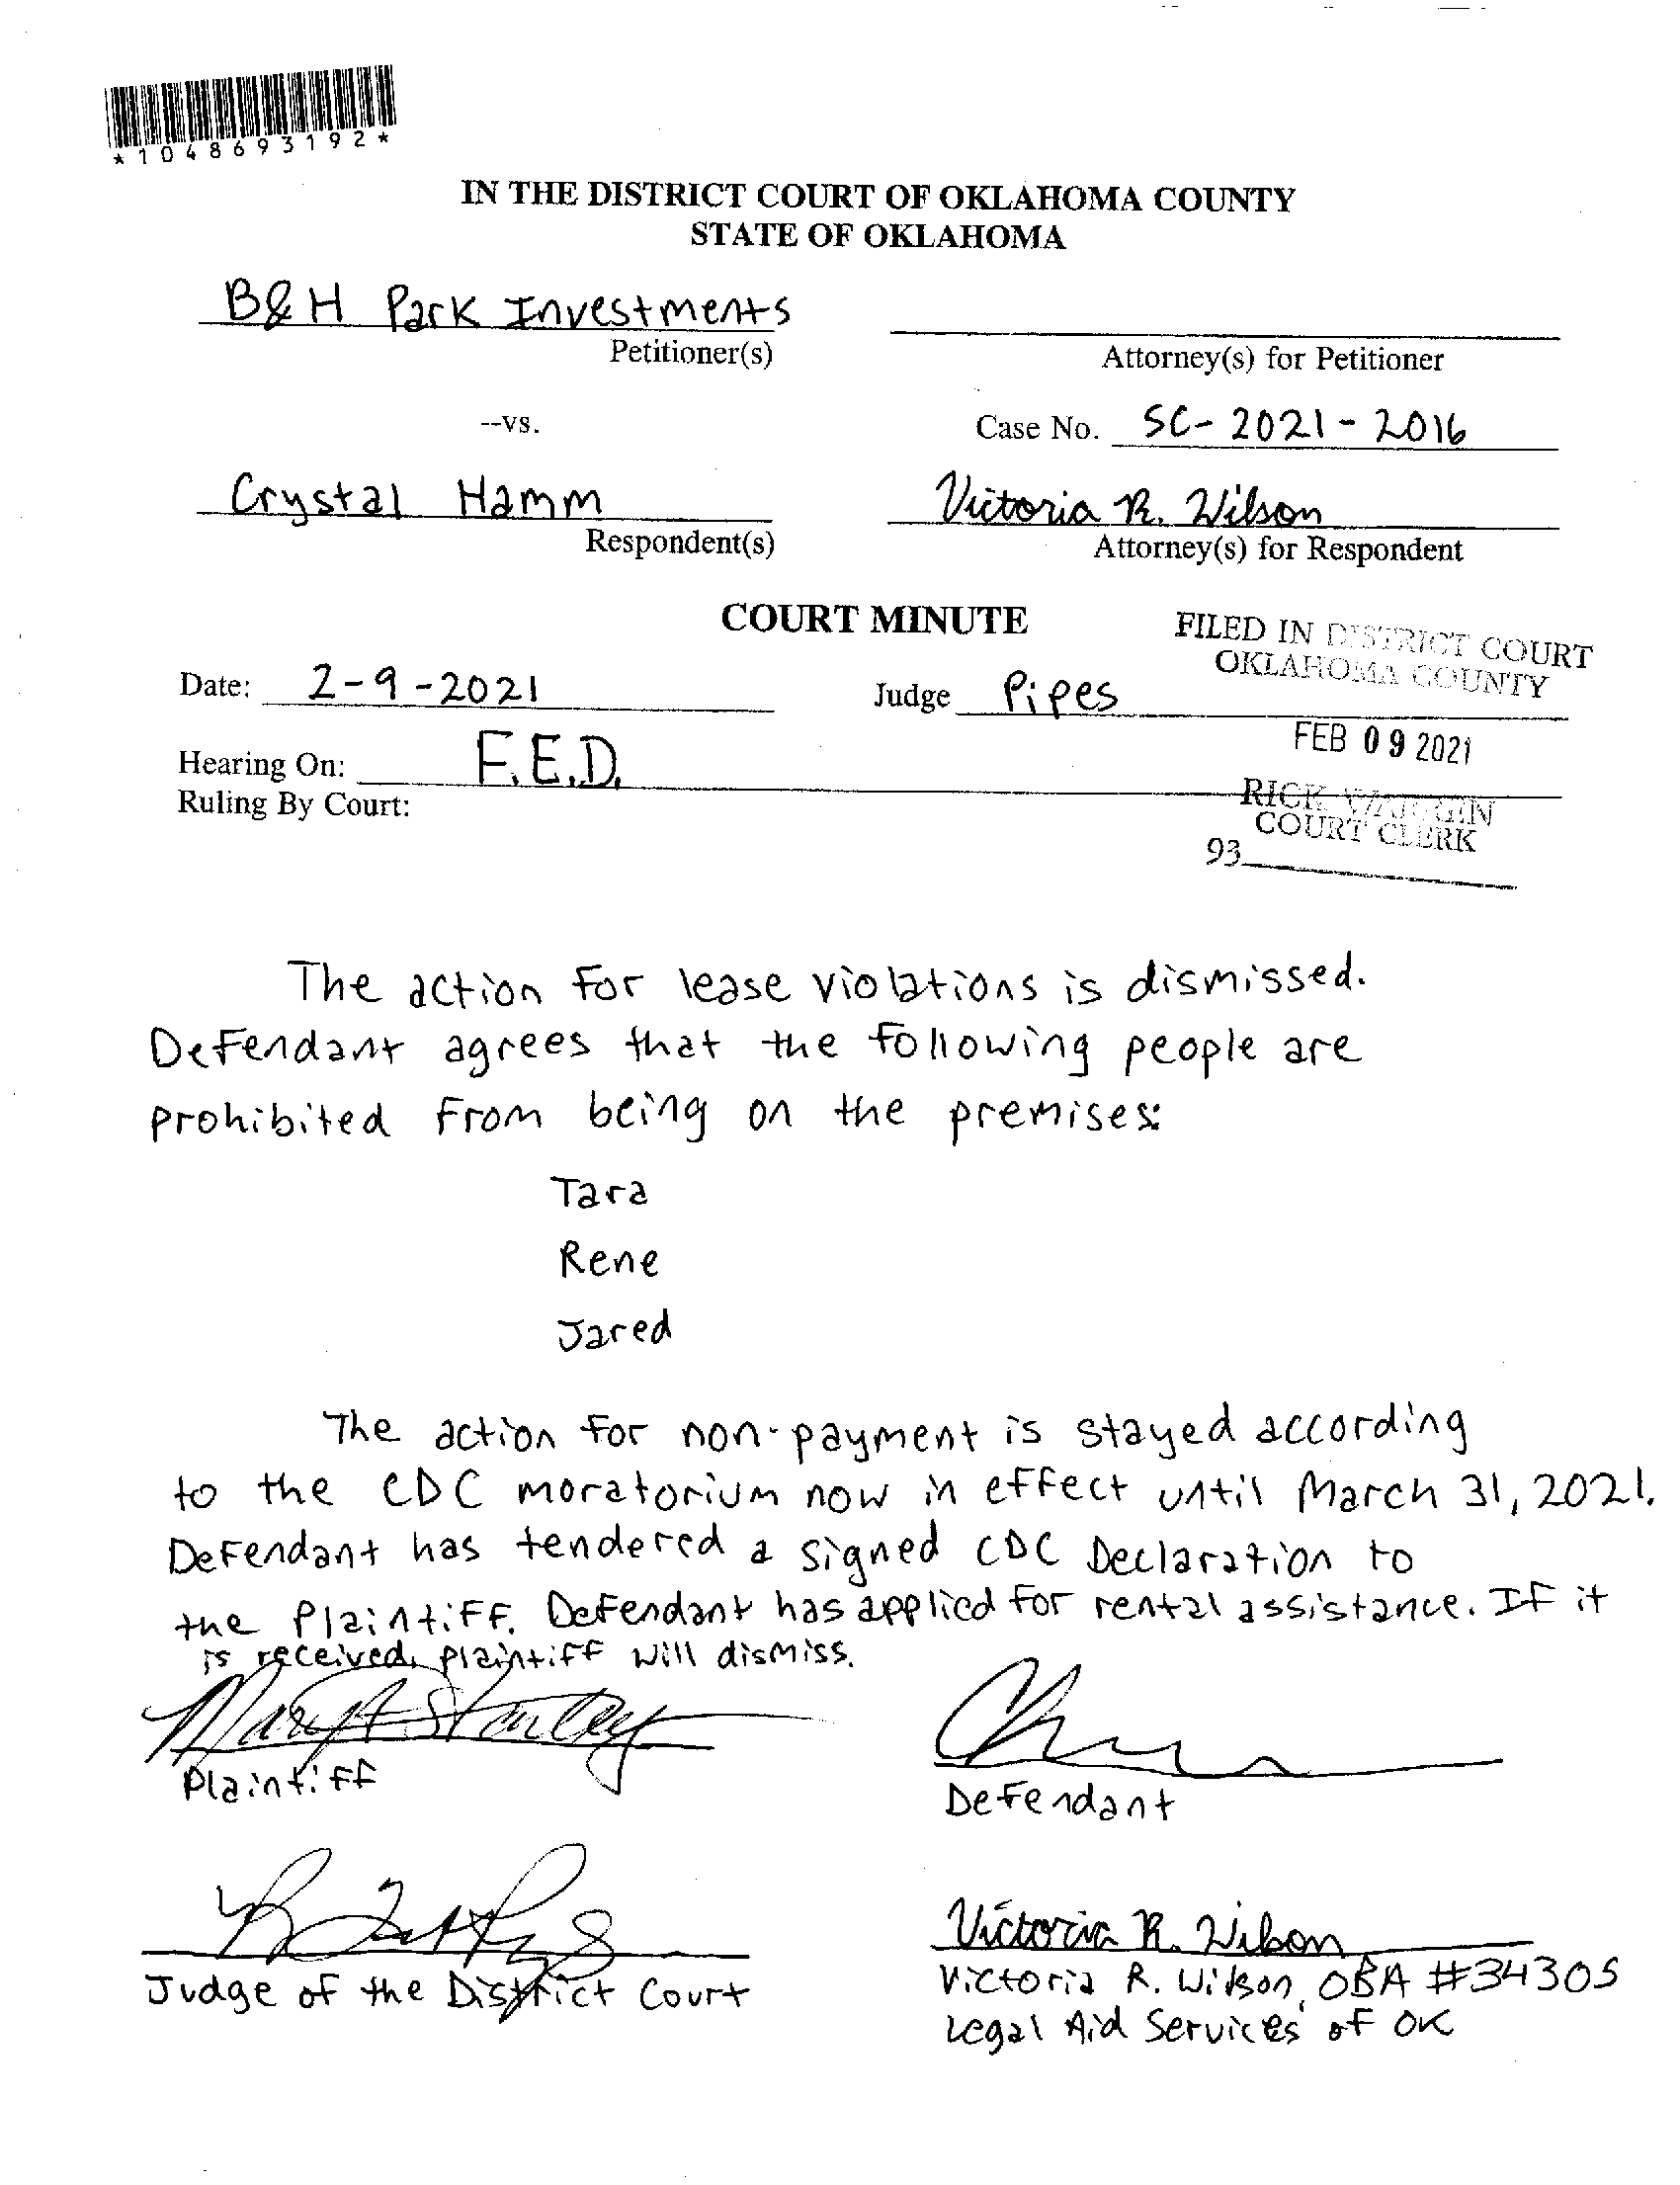 *1048693192*
IN THE DISTRICT COURT OF OKLAHOMA COUNTY
STATE OF OKLAHOMA
B&H Park Investments
Petitioner(s)
Attorney(s) for Petitioner
--vs.
Case No. SC-2021-2016
Crystal Hamm
Respondent(s)
Victoria R. Wilson
Attorney(s) for Respondent
COURT MINUTE
FILED IN DISTRICT COURT
OKLAHOMA COUNTY
Date: 2-9-2021
Judge Pipes
FEB 09 2021
Hearing On: F.E.D.
Ruling By Court:
RICK WARREN
COURT CLERK
93
The action for lease violations is dismissed.
Defendant agrees that the following people are
prohibited from being on the premises:
Tara
Rene
Jared
The action for non-payment is stayed according
to the CDC moratorium now in effect until March 31, 2021.
Defendant has tendered a signed CDC Declaration to
the Plaintiff. Defendant has applied for rental assistance. If it
is received, plaintiff will dismiss.
Plaintiff
Defendant
Judge of the District Court
Victoria R. Wilson
Victoria R. Wilson, OBA #34305
Legal Aid Services of OK